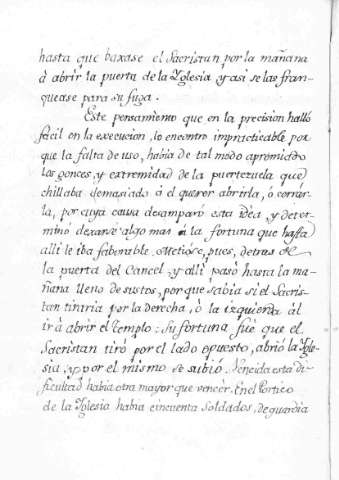 hasta que baxase el Sacristan por la mañana
à abrir la puerta de la Yglesia y asi se las fran-
quease para su fuga.
Este pensamiento que en la precision halló
facil en la execucion, lo encontro impracticable por
que la falta de uso, havia de tal modo apremiado
los gonces, y extremidad de la puertezuela que
chillaba demasiado à el querer abrirla, ò cerrar-
la, por cuya causa desamparó esta idea, y deter-
minó dexarse algo mas à la fortuna que hasta
alli le iba faborable. Metiose, pues, detras de
la puerta del Cancel, y alli pasó hasta la ma-
ñana lleno de sustos, por que sabia si el Sacris-
tan tiraria por la derecha, ò la izquierda àl
ir à abrir el templo: Su fortuna fué que el
Sacristan tiró por el lado opuesto, abrió la Ygle-
sia, y por el mismo se subió. Vencida esta di-
ficultad habia otra mayor que vencer. En el Portico
de la Yglesia habia cincuenta Soldados, de guardia